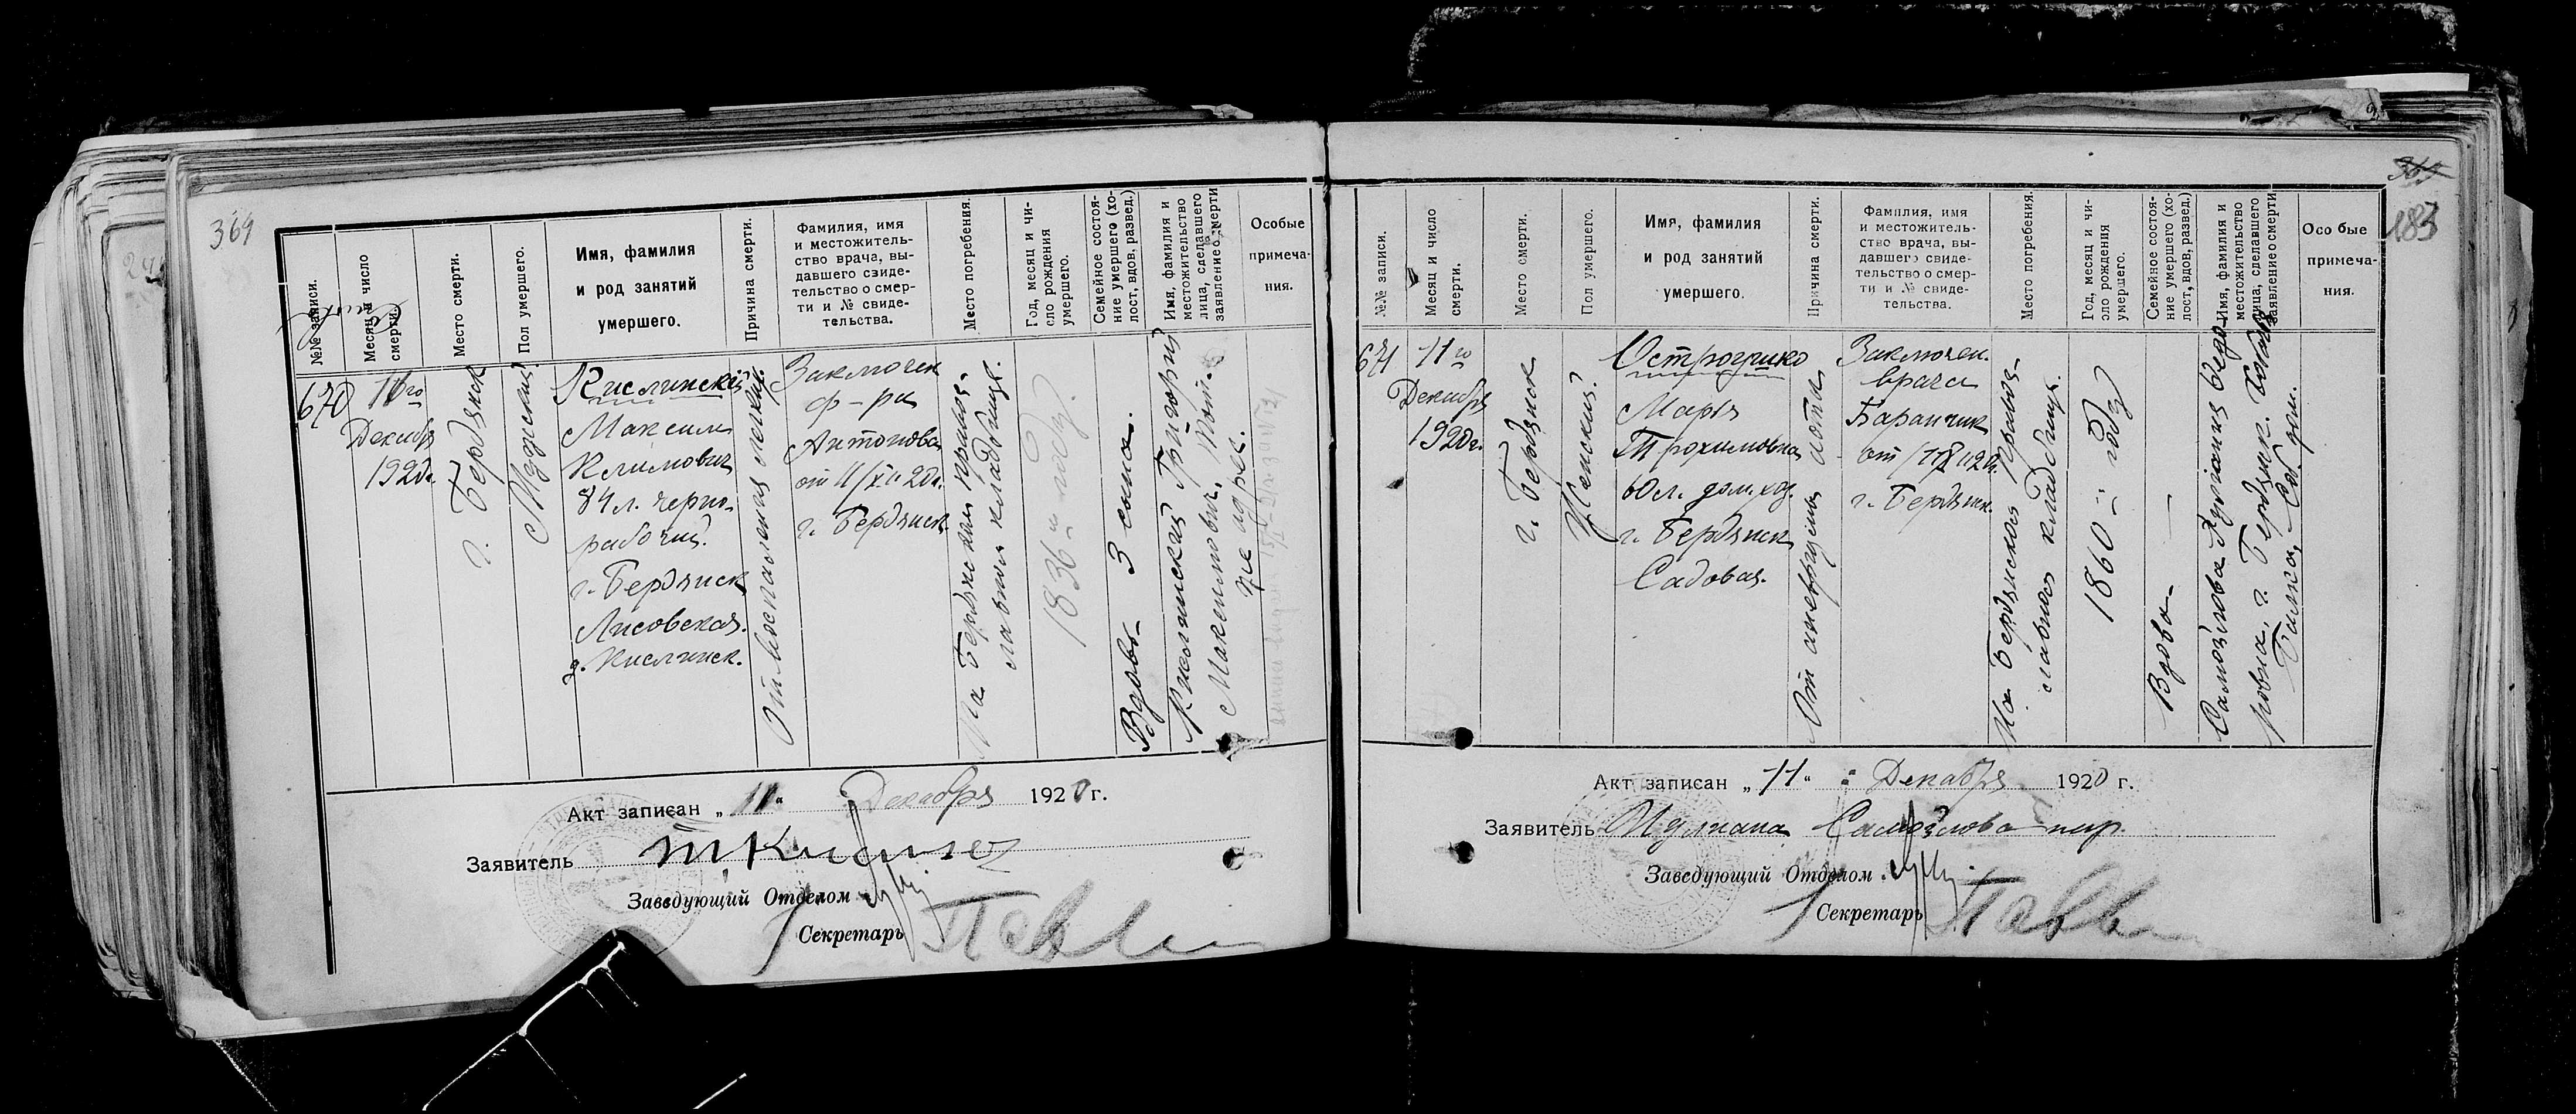 364
№№ записи.
Месяц и число
смерти.
Место смерти.
Пол умершего.
Имя, фамилия
и род занятий
умершего.
Причина смерти.
Фамилия, имя
и местожитель-
ство врача, вы-
давшего свиде-
тельство о смер-
ти и № свиде-
тельства.
Место погребения.
Год, месяц и чи-
сло рождения
умершего.
Семейное состоя-
ние умершего (хо-
лост, вдов, развед.)
Имя, фамилия и
местожительство
лица, сделавшего
заявление о смерти
Особые
примеча-
ния.
670
11го
Декабря
1920г.
г. Бердянск
Мужский
Кислинский
Максим
Климович
84 л. черно-
рабочий.
г. Бердянск
Лисовская.
д. Кислинск.
От воспаления легких.
Заключен
ф-ра
Антонова
от 11/XII 20г.
г. Бердянск
На Бердянском правос-
лавном кладбище.
1836 году.
Вдовы- 3 сына.
Кислинский Григорий
Максимович,
же адрес.
Акт записан „11“ Декабря 1920 г.
Заявитель
Заведующий Отделом
Секретарь
183
№№ записи.
Месяц и число
смерти.
Место смерти.
Пол умершего.
Имя, фамилия
и род занятий
умершего.
Причина смерти.
Фамилия, имя
и местожитель-
ство врача, вы-
давшего свиде-
тельство о смер-
ти и № свиде-
тельства.
Место погребения.
Год, месяц и чи-
зло рождения
умершего.
Семейное состоя-
ние умершего (хо-
лост, вдов, развед.)
Имя, фамилия и
местожительство
лица, сделавшего
заявление о смерти
Особые
примеча-
ния.
671
11го
Декабря
1920г.
г. Бердянск
Женский.
Острогушко
Марья
Трохимовна
60 л. дом. хоз.
г. Бердянск
Садовая.
От аневризма аорты
Заключен.
врача
Баранчик
от
г. Бердянск.
На Бердянском правос-
лавном кладбище.
1860 году
Вдова-
Самойлова
г. Бердянск.
Балка, Соб. дом.
Акт записан „11“ Декабря 1920 г.
Заявитель Самойлова
Заведующий Отделом
Секретарь